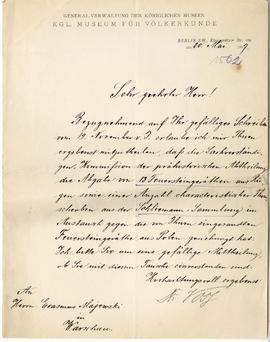 GENERAL-VERWALTUNG DER KÖNIGLICHEN MUSEEN
KGL. MUSEUM FÜR VÖLKERKUNDE
BERLIN S.W.
20. Mai
1562
Sehr geehrter Herr!
Bezugnehmend auf Ihr gefälliges Schreiben
vom 19. November v. J. erlaube ich mir Ihnen
ergebenst mitzutheilen, daß die Sachverständigen
Kommission der prähistorischen Abtheilung
die Abgabe von 13 Feuersteingeräthen aus Rügen
sowie einer Anzahl charakteristischer Thonscherben
aus der Schliemann Sammlung im
Austausch gegen die von Ihnen eingesandten
Feuersteingeräthe aus Polen genehmigt hat.
Ich bitte Sie um eine gefällige Mittheilung,
ob Sie mit diesem Tausche einverstanden sind
Hochachtungsvoll ergebenst
A. Voß
An
Herrn Erasmus Majewski
in
Warschau.